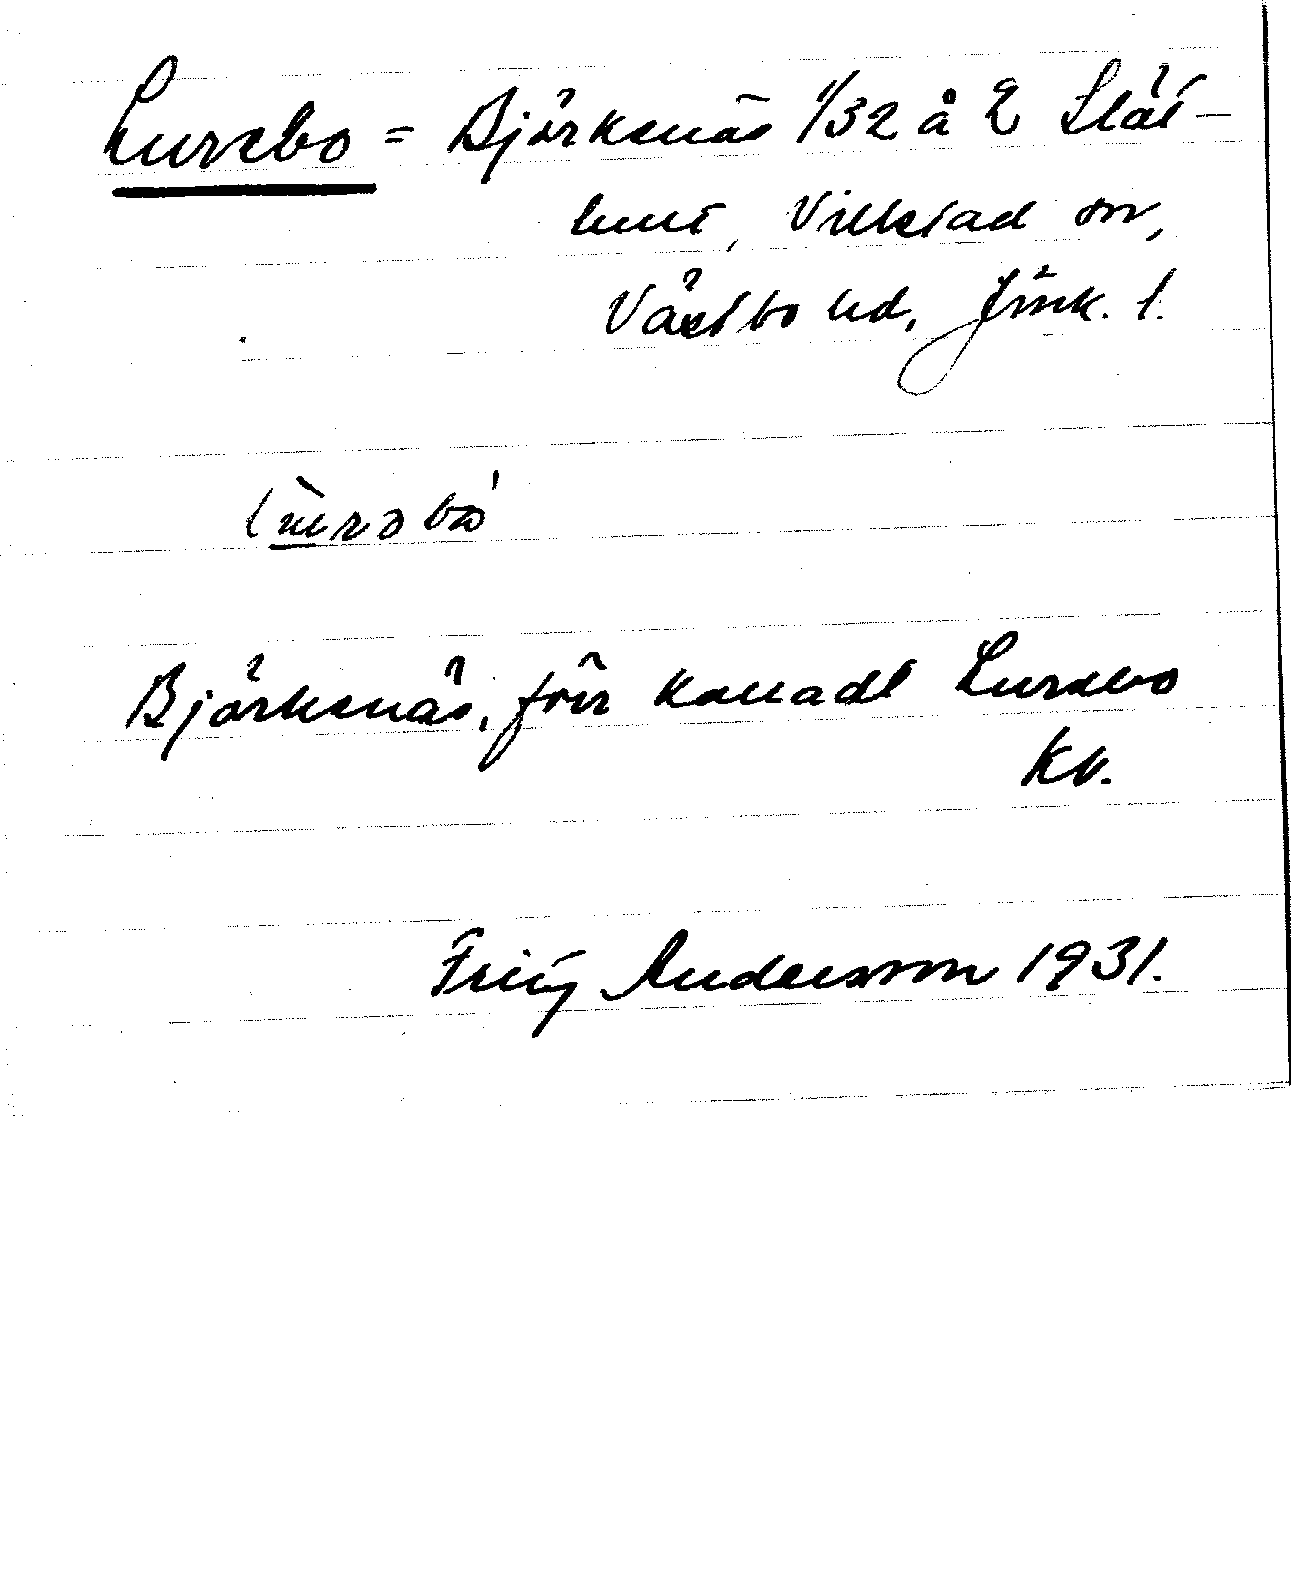 Lurebo = Björkenäs 1/32 å Q Slät-
hult, Villstad sn,
Västbo hd, Jönk. l.
Björkenäs, förr kalladt Lurebo
Kb.
Andersson 1931.